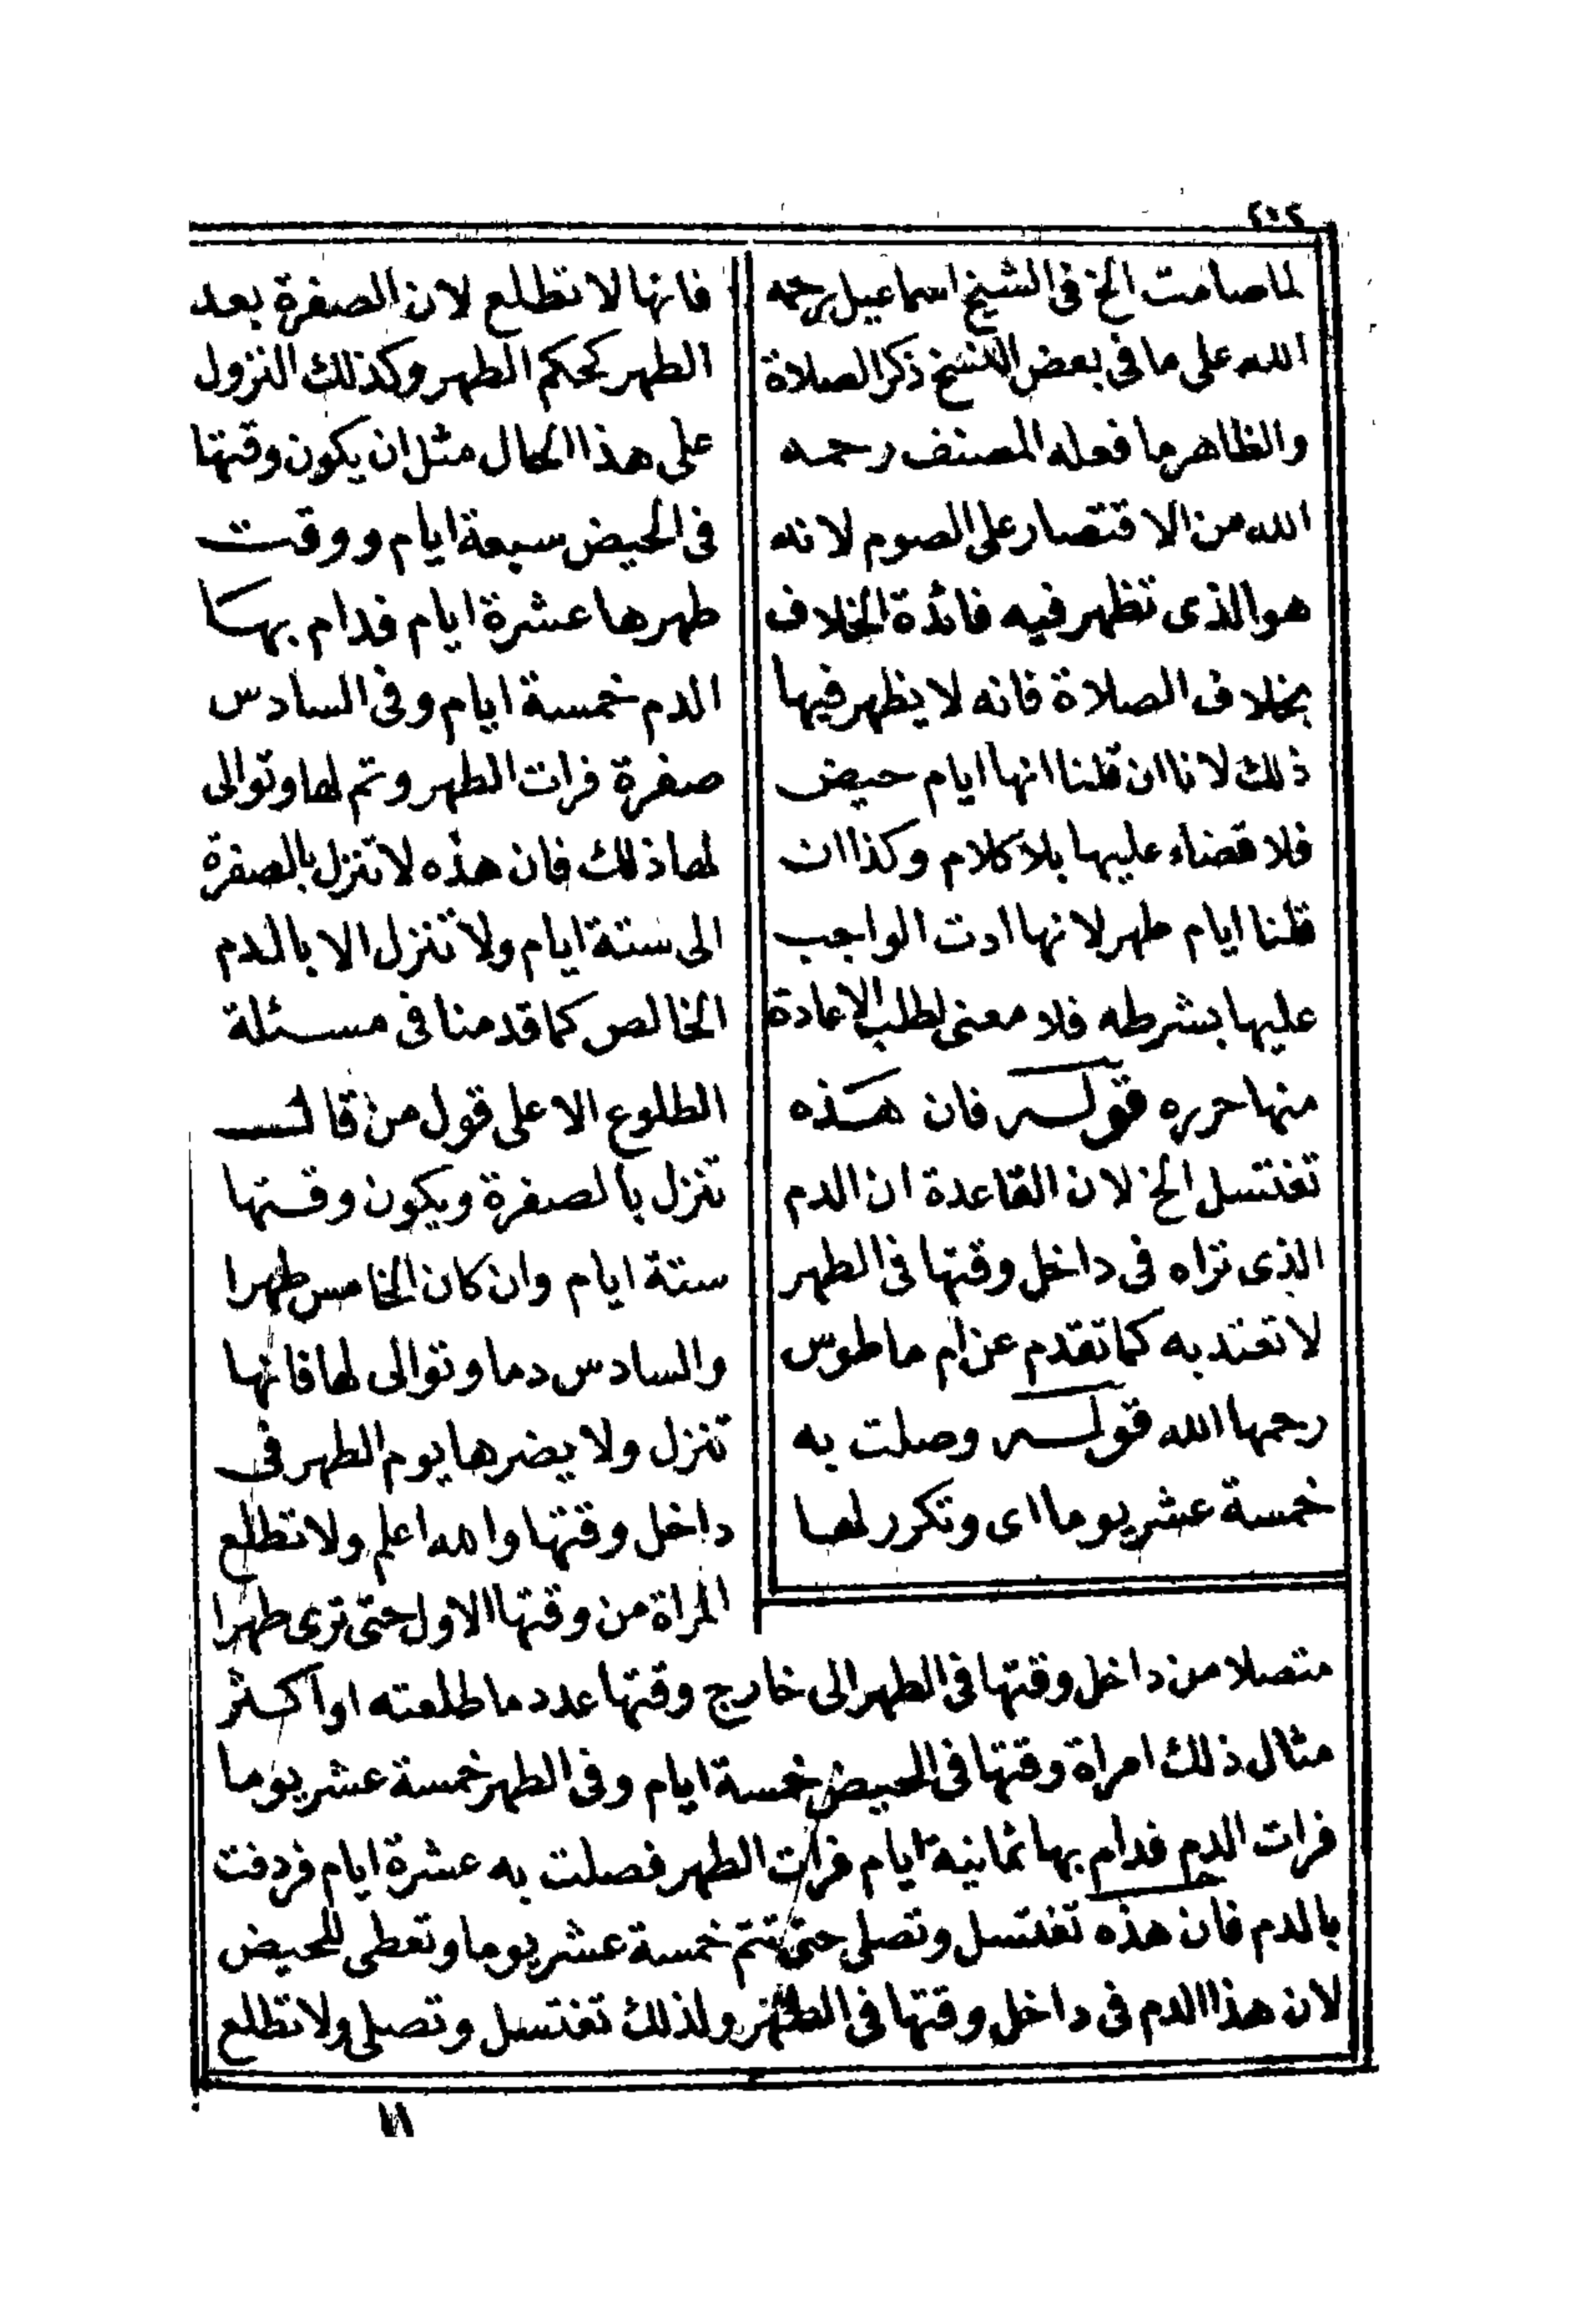 ٢٠٢
لما صامت الخ فى الشيخ اسماعيل رحمه
الله على ما فى بعض النسخ ذكر الصلاة
والظاهر ما فعله المصنف رحمه
الله من الاقتصار على الصوم لانه
هو الذى تظهر فيه فائدة الخلاف
بخلاف الصلاة فانه لا يظهر فيها
ذلك لانا ان قلنا انها ايام حيض
فلا قضاء عليها بلا كلام وكذا ان
قلنا ايام طهر لانها ادت الواجب
عليها بشرطه فلا معنى لطلب الاعادة
منها حرره قوله فان هذه
تغتسل الخ لان القاعدة ان الدم
الذى تراه فى داخل وقتها فى الطهر
لا تعتد به كما تقدم عن ام ماطوس
رحمها الله قوله وصلت به
خمسة عشر يوما اى وتكرر لها
فانها لا تطلع لان الصفرة بعد
الطهر كحكم الطهر وكذلك النزول
على هذا الحال مثل ان يكون وقتها
فى الحيض سبعة ايام ووقت
طهرها عشرة ايام فدام بها
الدم خمسة ايام وفى السادس
صفرة فرات الطهر وتم لها وتوالى
لها ذلك فان هذه لا تنزل بالصفرة
الى ستة ايام ولا تنزل الا بالدم
الخالص كما قدمنا فى مسئلة
الطلوع الا على قول من قال
تنزل بالصفرة ويكون وقتها
ستة ايام وان كان الخامس طهرا
والسادس دما وتوالى لها فانها
تنزل ولا يضرها يوم الطهر فى
داخل وقتها والله اعلم ولا تطلع
المراة من وقتها الاول حتى ترى طهرا
متصلا من داخل وقتها فى الطهر الى خارج وقتها عدد ما طلعته او اكثر
مثال ذلك امراة وقتها فى الحيض خمسة ايام وفى الطهر خمسة عشر يوما
فرات الدم فدام بها ثمانية ايام فرات الطهر فصلت به عشرة ايام فردفت
بالدم فان هذه تغتسل وتصلى حتى تتم خمسة عشر يوما وتعطى للحيض
لان هذا الدم فى داخل وقتها فى الطهر ولذلك تغتسل وتصلى ولا تطلع